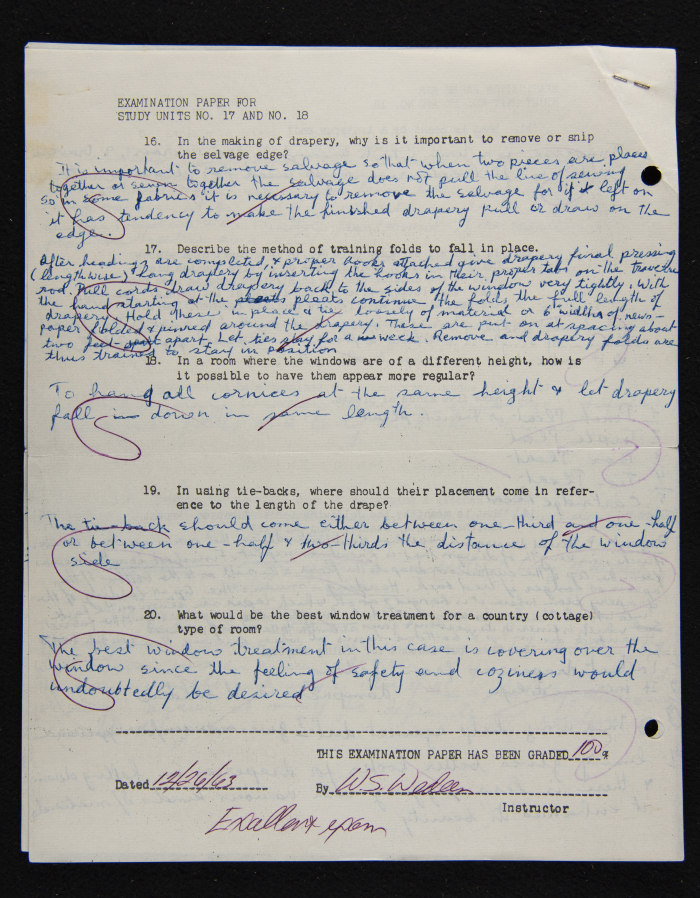 EXAMINATION PAPER FOR
STUDY UNITS NO. 17 AND NO. 18
16. In the making of drapery, why is it important to remove or snip
the selvage edge?
It is important to remove salvage so that when two pieces are place
together or sewn together the salvage does not pull the line of sewing
so in some fabrics it is necessary to remove the salvage for if it left on
it has tendency to make the finished drapery pull or draw on the
edge.
17. Describe the method of training folds to fall in place.
After headings are completed, & proper hooks attached give drapery final pressing
(lengthwise) hang drapery by inserting the hooks in their proper tabs on the traverse
rod. Pull cords draw drapery back to the sides of the window very tightly. With
the hand starting at the pleats continue the folds the full length of
drapery. Hold these in place & tie loosely of material or 6" widths of news-
paper folded & pinned around the drapery. These are put on at spacing about
two feet apart. Let ties stay for a week. Remove and drapery folds are
thus trained to stay in position
18. In a room where the windows are of a different height, how is
it possible to have them appear more regular?
To hang all cornices at the same height & let drapery
fall in down in same length.
19. In using tie-backs, where should their placement come in refer-
ence to the length of the drape?
The tie-back should come either between one-third and one-half
or between one-half & two-thirds the distance of the window
side
20. What would be the best window treatment for a country (cottage)
type of room?
The best window treatment in this case is covering over the
window since the feeling of safety and coziness would
undoubtedly be desired
THIS EXAMINATION PAPER HAS BEEN GRADED 100%
Dated 12/26/63 By W.S.
Instructor
Excellent exam